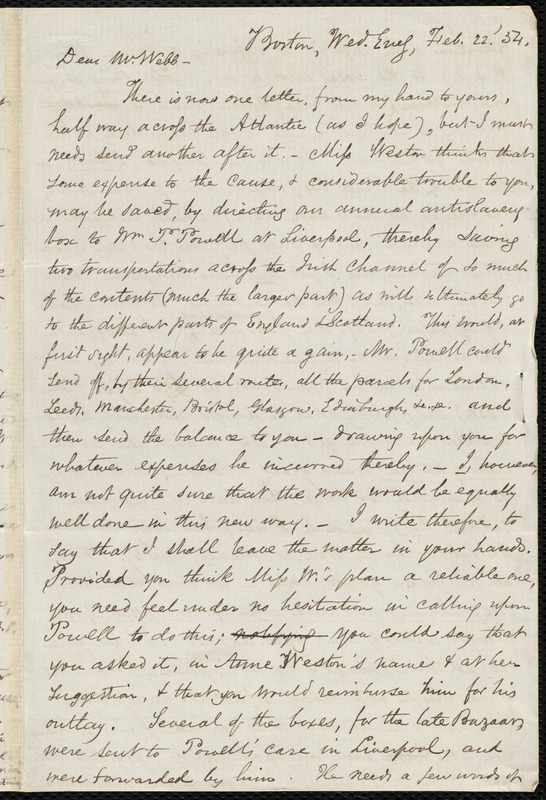 Boston, Wed. Eveg, Feb. 22d 54.
Dear Mr Webb—
There is now one letter, from my hand to yours,
half way across the Atlantic (as I hope), but I must
needs send another after it. — Miss Weston thinks that
some expense to the cause, & considerable trouble to you,
may be saved, by directing our annual antislavery
box to Wm P. Powell at Liverpool, thereby saving
two transportations across the Irish Channel of so much
of the contents (much the larger part) as will ultimately go
to the different parts of England & Scotland. This would, at
first sight, appear to be quite a gain,— Mr. Powell could
send off, by their several routes, all the parcels for London,
Leeds, Manchester, Bristol, Glasgow, Edinburgh, &c. &c. and
then send the balance to you — drawing upon you for
whatever expenses he incurred thereby. — I, however,
am not quite sure that the work would be equally
well done in this new way. — I write therefore, to
say that I shall leave the matter in your hands.
Provided you think Miss W.'s plan a reliable one,
you need feel under no hesitation in calling upon
Powell to do this; notifying You could say that
you asked it, in Anne Weston's name & at her
suggestion, & that you would reimburse him for his
outlay. Several of the boxes, for the late Bazaar,
were sent to Powell's care in Liverpool, and
were forwarded by him. He needs a few words of